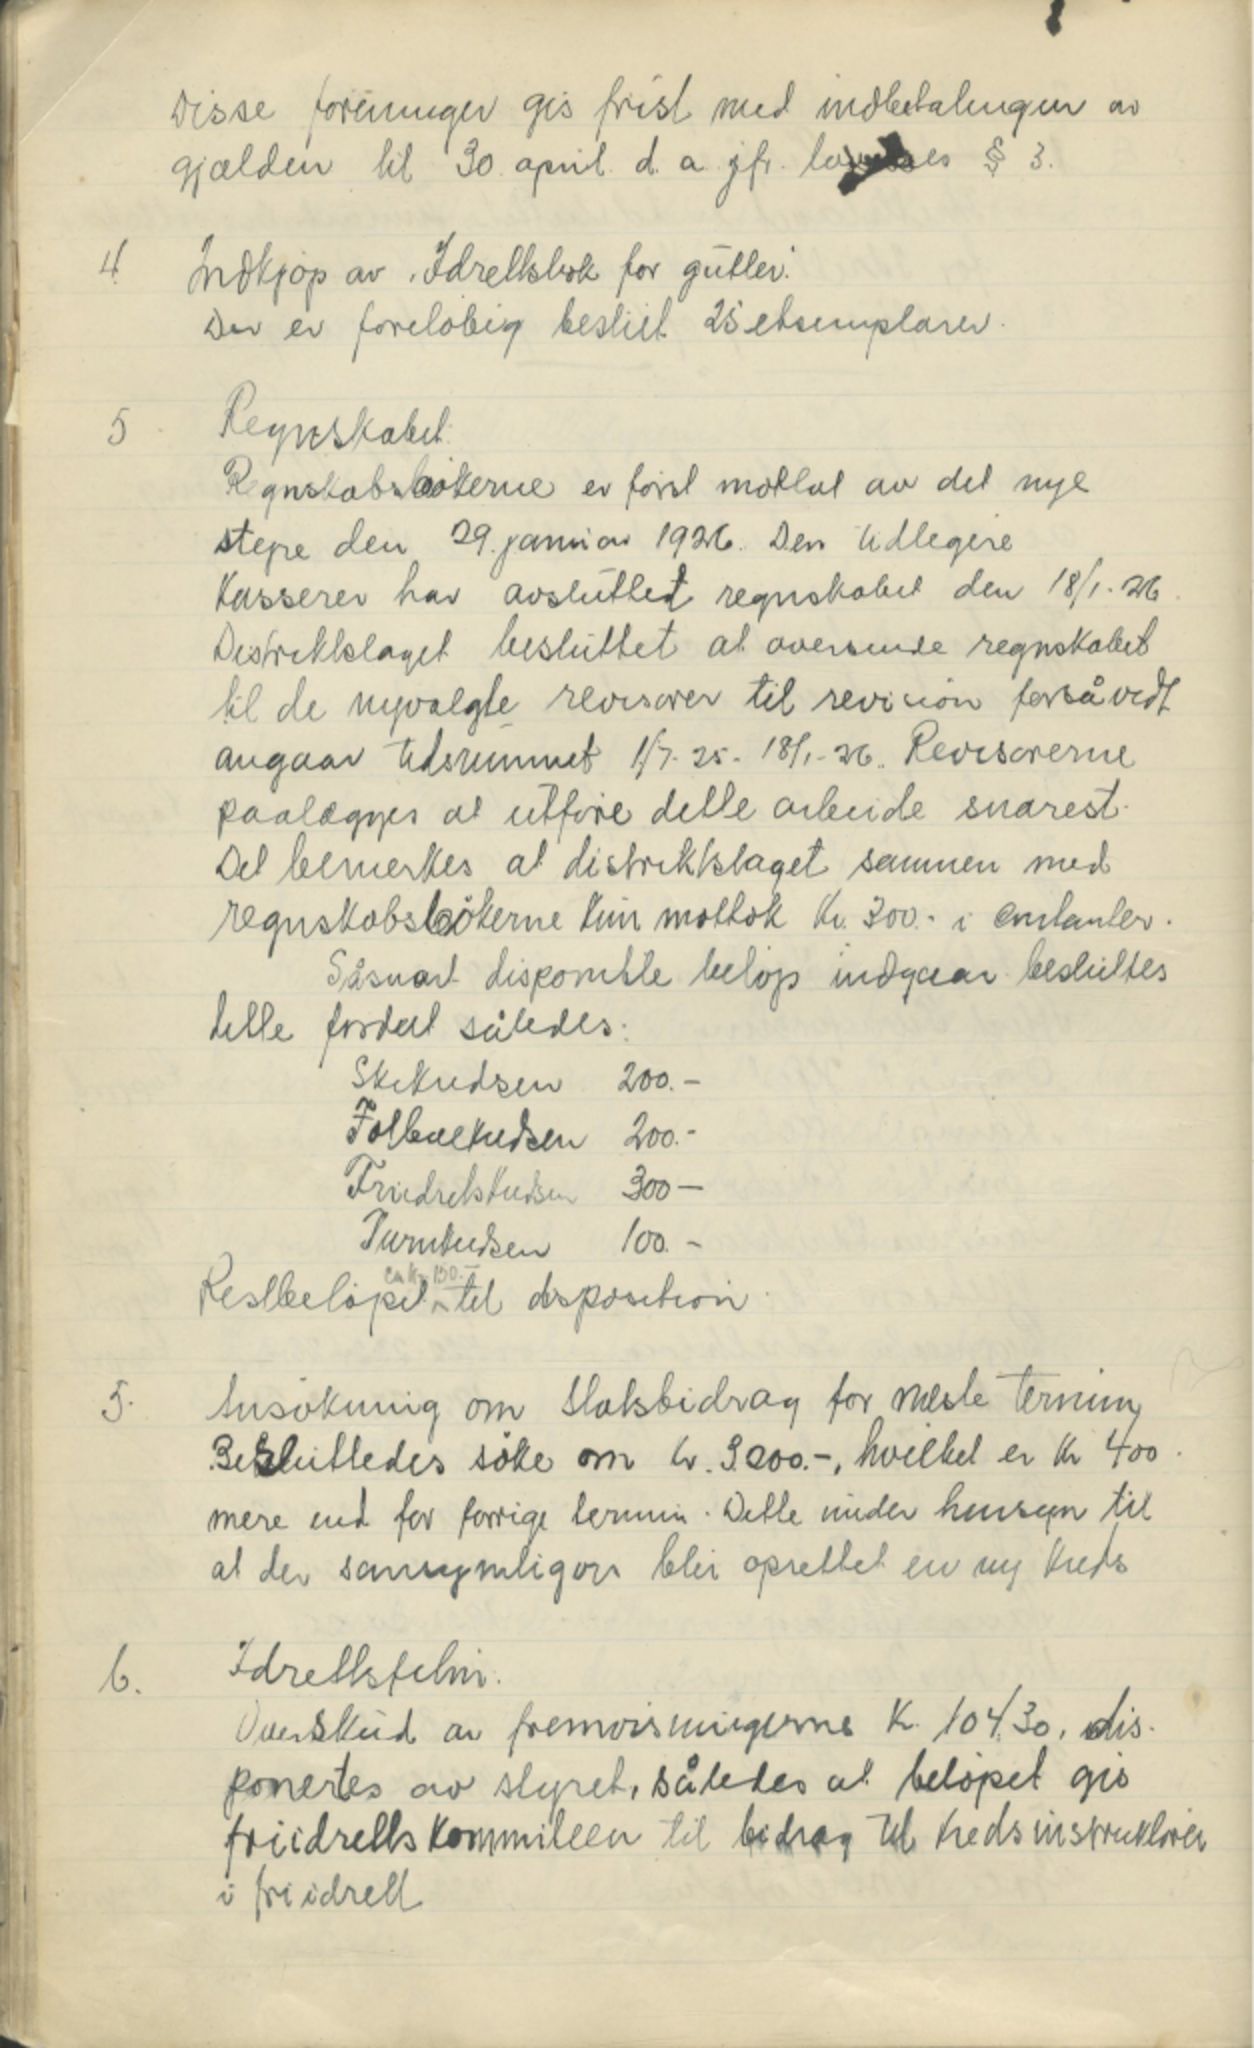 Disse foreninger gis frist med indbetalingen av
gjælden til 30. april d. a. jfr. lovenes § 3.
4 Indkjöp av "Idrettsbok for gutter".
Der er forelöbig bestilt 25 eksemplarer.
5. Regnskabet.
Regnskabsbökerne er först mottat av det nye
styre den 29. januar 1926. Den tidligere
kasserer har avsluttet regnskabet den 18/1-26.
Distriktslaget besluttet at oversende regnskabet
til de nyvalgte revisorer til revision forsåvidt
angaar tidsrummet 1/7-25 - 18/1-26. Revisorerne
paalægges at utföre dette arbeide snarest.
Det bemerkes at distriktslaget sammen med
regnskabsbökerne kun mottok Kr. 300.- i contanter.
Såsnart disponible belöp indgaar besluttes
dette fordelt således:
Skikredsen 200.-
Fotballkredsen 200.-
Friidretskredsen 300-
Turnkredsen 100.-
ca Kr 150.-
Restbelöpet til disposition.
5. Ansökning om Statsbidrag for næste termin
Besluttedes söke om kr. 3000.-, hvilket er Kr 400.
mere end for forrige termin. Dette under hensyn til
at der sansynligvis blir oprettet en ny kreds
6. Idrettsfilm.
Overskud av fremvisningerne Kr. 104,30, dis-
ponertes av styret, således at belöpet gis
friidrettskommiteen til bidrag til kredsinstruktörer
i friidrett